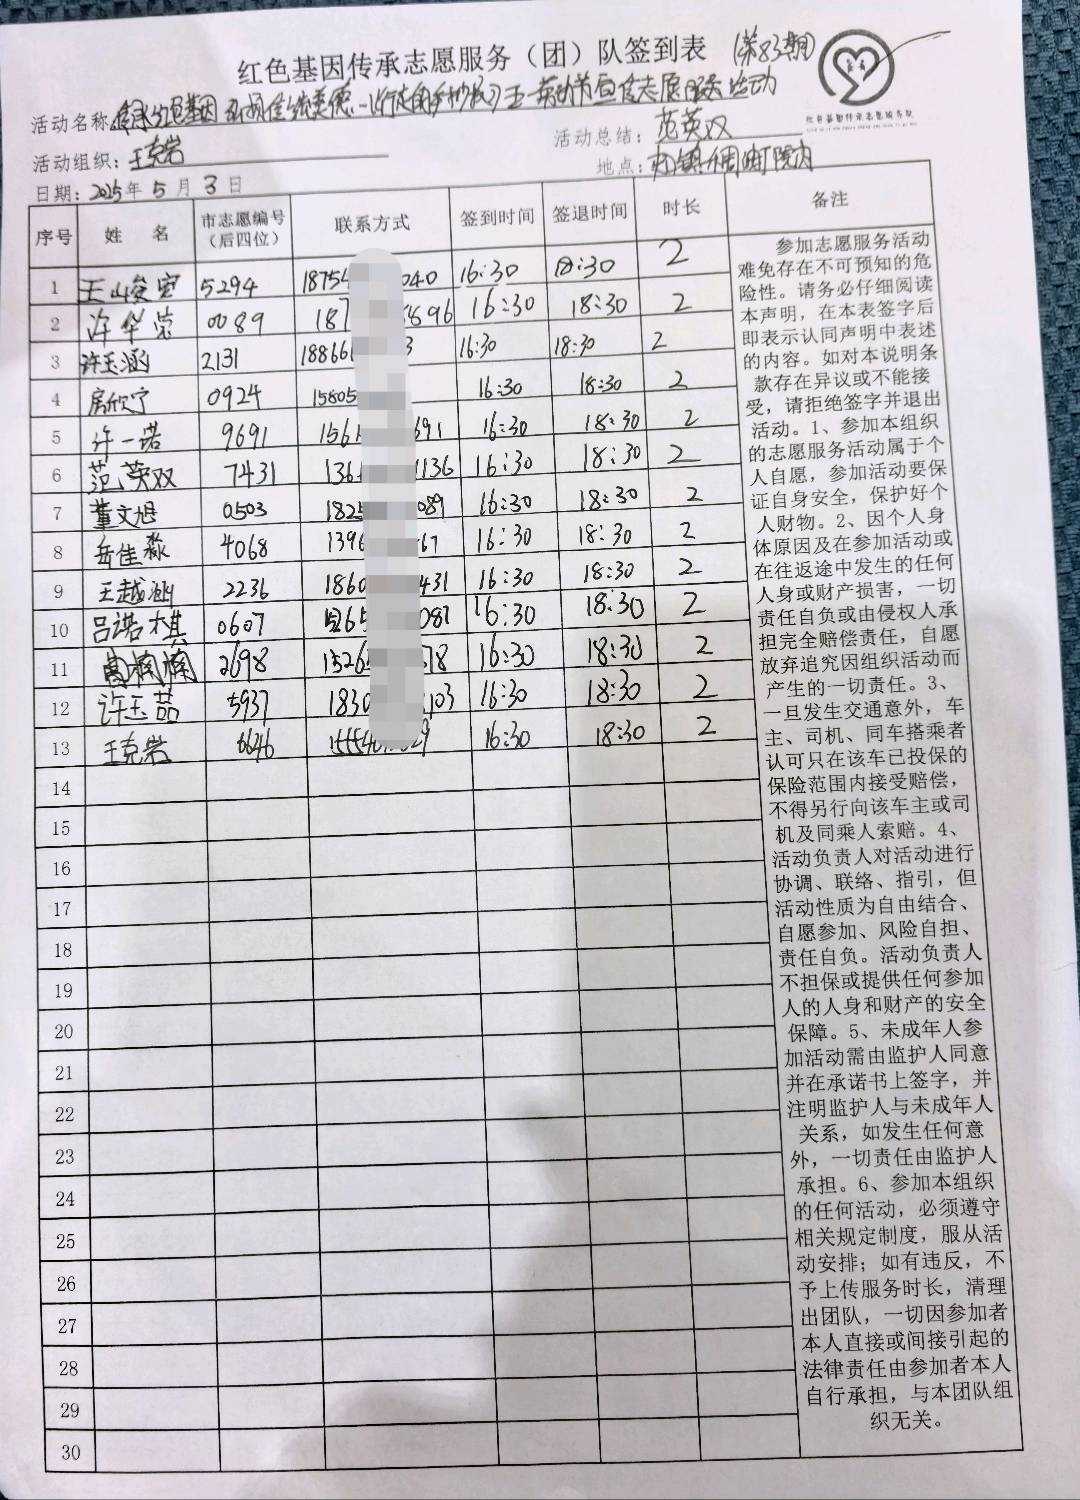 红色基因传承志愿服务（团）队签到表 (第83期)
活动名称:传承红色基因 弘扬传统美德
活动总结: 范英双
活动组织: 王克岩
地点:
日期: 2025年 5 月 3 日
序号 姓 名 市志愿编号（后四位） 联系方式 签到时间 签退时间 时长 备注
1 5294 18754 040 16:30 18:30 2
2 许华 0089 187 896 16:30 18:30 2
3 许玉涵 2131 18866 3 16:30 18:30 2
4 房欣宁 0924 15805 16:30 18:30 2
5 许一诺 9691 1561 691 16:30 18:30 2
6 范英双 7431 1361 1136 16:30 18:30 2
7 董文旭 0503 1825 089 16:30 18:30 2
8 岳佳淼 4068 1396 67 16:30 18:30 2
9 王越涵 2236 1860 431 16:30 18:30 2
10 吕诺棋 0607 081 16:30 18:30 2
11 2698 1526 78 16:30 18:30 2
12 许玉茹 5937 1830 103 16:30 18:30 2
13 王克岩 6646 15554 29 16:30 18:30 2
14
15
16
17
18
19
20
21
22
23
24
25
26
27
28
29
30
参加志愿服务活动
难免存在不可预知的危
险性。请务必仔细阅读
本声明，在本表签字后
即表示认同声明中表述
的内容。如对本说明条
款存在异议或不能接
受，请拒绝签字并退出
活动。1、参加本组织
的志愿服务活动属于个
人自愿，参加活动要保
证自身安全，保护好个
人财物。2、因个人身
体原因及在参加活动或
在往返途中发生的任何
人身或财产损害，一切
责任自负或由侵权人承
担完全赔偿责任，自愿
放弃追究因组织活动而
产生的一切责任。3、
一旦发生交通意外，车
主、司机、同车搭乘者
认可只在该车已投保的
保险范围内接受赔偿，
不得另行向该车主或司
机及同乘人索赔。4、
活动负责人对活动进行
协调、联络、指引，但
活动性质为自由结合、
自愿参加、风险自担、
责任自负。活动负责人
不担保或提供任何参加
人的人身和财产的安全
保障。5、未成年人参
加活动需由监护人同意
并在承诺书上签字，并
注明监护人与未成年人
关系，如发生任何意
外，一切责任由监护人
承担。6、参加本组织
的任何活动，必须遵守
相关规定制度，服从活
动安排；如有违反，不
予上传服务时长，清理
出团队，一切因参加者
本人直接或间接引起的
法律责任由参加者本人
自行承担，与本团队组
织无关。